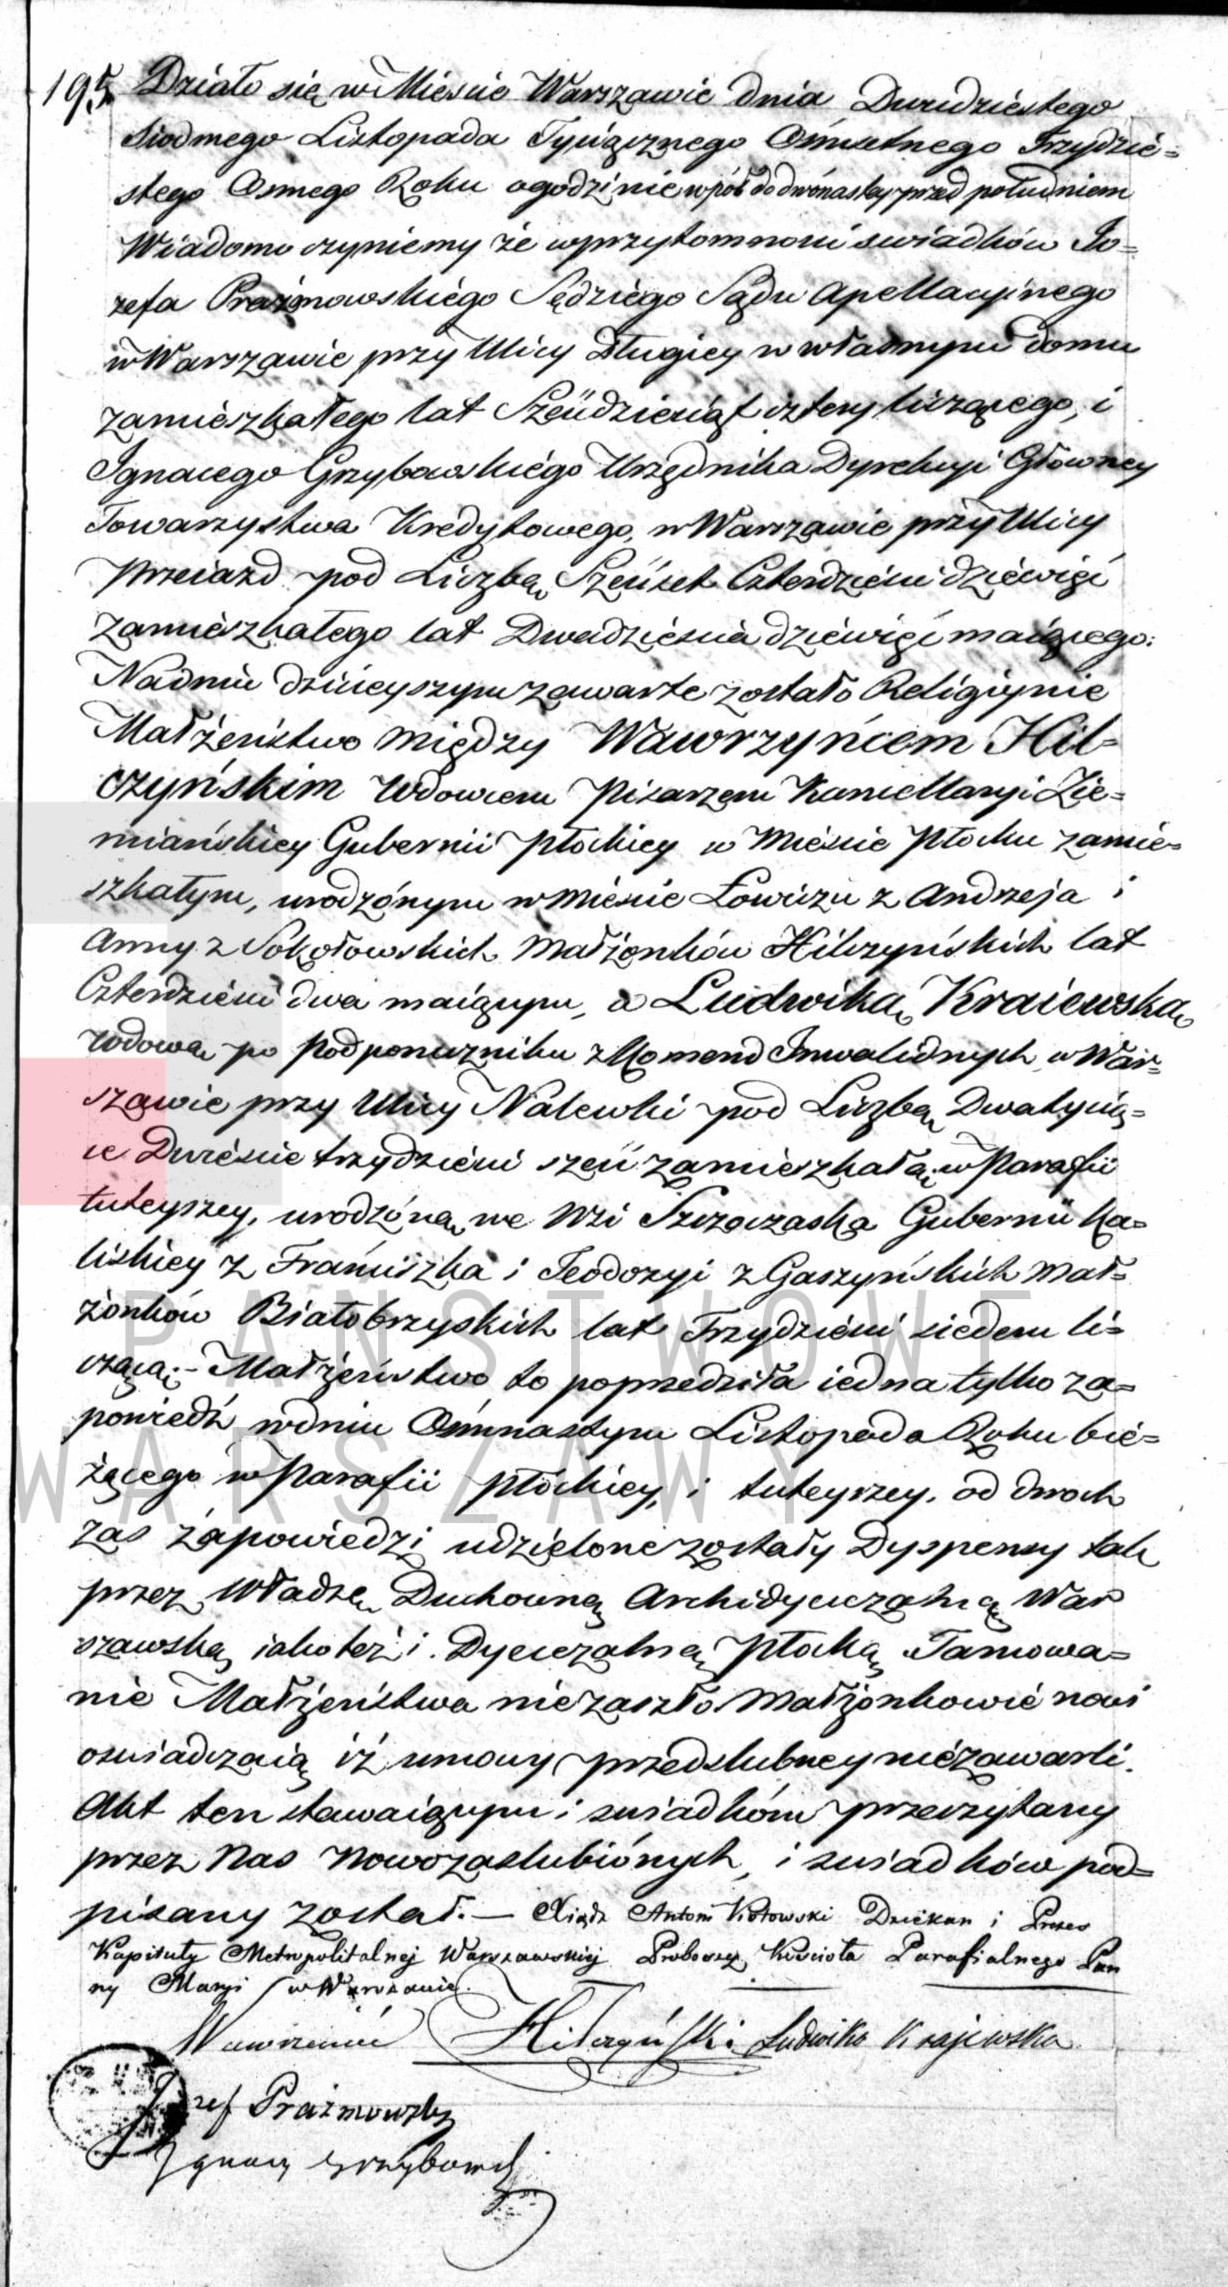 195 Działo się w Mieście Warszawie dnia Dwudziestego
siodmego Listopada Tysiącznego Ośmsetnego Trzydzie=
stego Osmego Roku o godzinie wpół do dwónastey przed południem
Wiadomo czyniemy że w przytomności swiadków Jó=
zefa Prażmowskiégo Sędziego Sądu Apellacyinego
w Warszawie przy Ulicy Długiey w własnym domu
zamieszkałego lat Sześćdziesiąt cztery liczącego, i
Ignacego Grzybowskiégo Urzędnika Dyrekcyi Główney
Towarzystwa Kredytowego, w Warszawie przy Ulicy
Przeiazd pod Liczbą Sześćset Czterdzieści dziéwięć
zamieszkałego lat Dwadzieścia dziéwięć maiącego:
Na dniu dzisieyszym zawarte zostało Religiynie
Małżeństwo między Wawrzyńcem Hil=
czyńskim Wdowcem Pisarzem Kancellaryi Zie=
miańskiey Gubernii Płockiey w Mieście Płocku zamie=
szkałym, urodzónym w Mieście Łowiczu z Andrzeja i
Anny z Sokołowskich Małżonków Hilczyńskich lat
Czterdzieści dwa maiącym, a Ludwiką Kraiewską
Wdową po Podporuczniku z Komend Inwalidnych, w War=
szawie przy Ulicy Nalewki pod Liczbą Dwatysią=
ce Dwieście trzydzieści sześć zamieszkałą w Parafii
tuteyszey, urodzóną we Wsi Gubernii Ka=
liskiey z Franciszka i Teodozyi z Gaszyńskich Mał=
żonków Białobrzyskich lat Trzydzieści siedem li=
czącą:– Małżeństwo to poprzedziła iedna tylko za=
powiedź w dniu Ośmnastym Listopada Roku bié=
żącego w Parafii Płockiey, i tuteyszey, od dwoch
zas zapowiedzi udzielone zostały Dyspensy tak
przez Władzę Duchowną Archidyecezalną War
szawską iako też i Dyecezalną Płocką Tamowa=
nie Małżeństwa nie zaszło. Małżonkowie nowi
oswiadczaią iż umowy przedslubney niezawarli.
Akt ten stawaiącym i swiadkóm przeczytany
przez Nas Nowozaslubiónych, i swiadków pod=
pisany został.— Xiądz Antoni Kotowski Dziekan i Prezes
Kapituły Metropolitalnej Warszawskiej Proboszcz Kościoła Parafialnego Pan
ny Maryi w Warszawie.
Wawrzeniec Hilczyński Ludwika Krajewska
Józef Prażmowski
Ignacy Grzybowski
PAŃSTWOWE
WARSZAWY